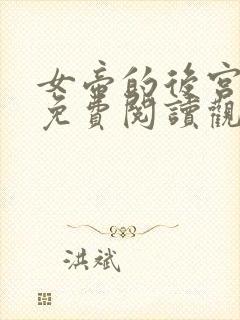 女帝的後宮
免費閱讀觀
洪斌